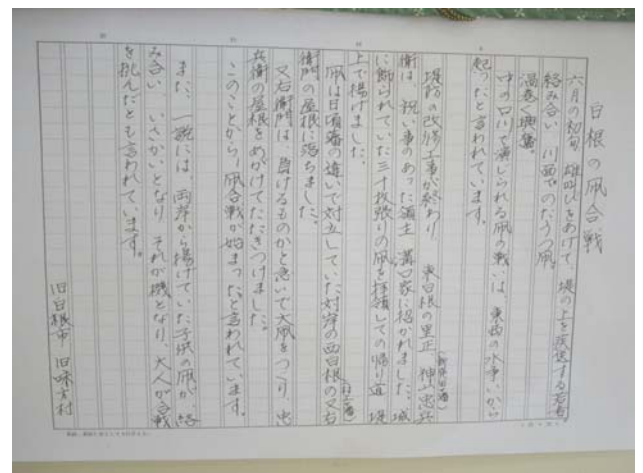 白根の凧合戦
六月の初旬、雄叫びをあげて、堤の上を疾走する若者、
絡み合い、川面でのたうつ凧。
渦巻く興奮。
中の口川で演じられる凧の戦いは、東西の水争いから
起ったと言われています。
堤防の改修工事が終わり、東白根の里正、神山忠兵
(新発田藩)
衛は、祝い事のあった藩主、溝口家に招かれました。城
に飾られていた三十枚張りの凧を拝領しての帰り道、堤
上で揚げました。
凧は日頃藩の違いで対立していた対岸の西白根の又右
(村上藩)
衛門の屋根に落ちました。
又右衛門は、負けるものかと急いで大凧をつくり、忠
兵衛の屋根をめがけてたたきつけました。
このことから、凧合戦が始まったと言われています。
また、一説には、両岸から揚げていた子供の凧が、絡
み合い、いさかいとなり、それが機となり、大人が合戦
を挑んだとも言われています。
旧白根市 旧味方村